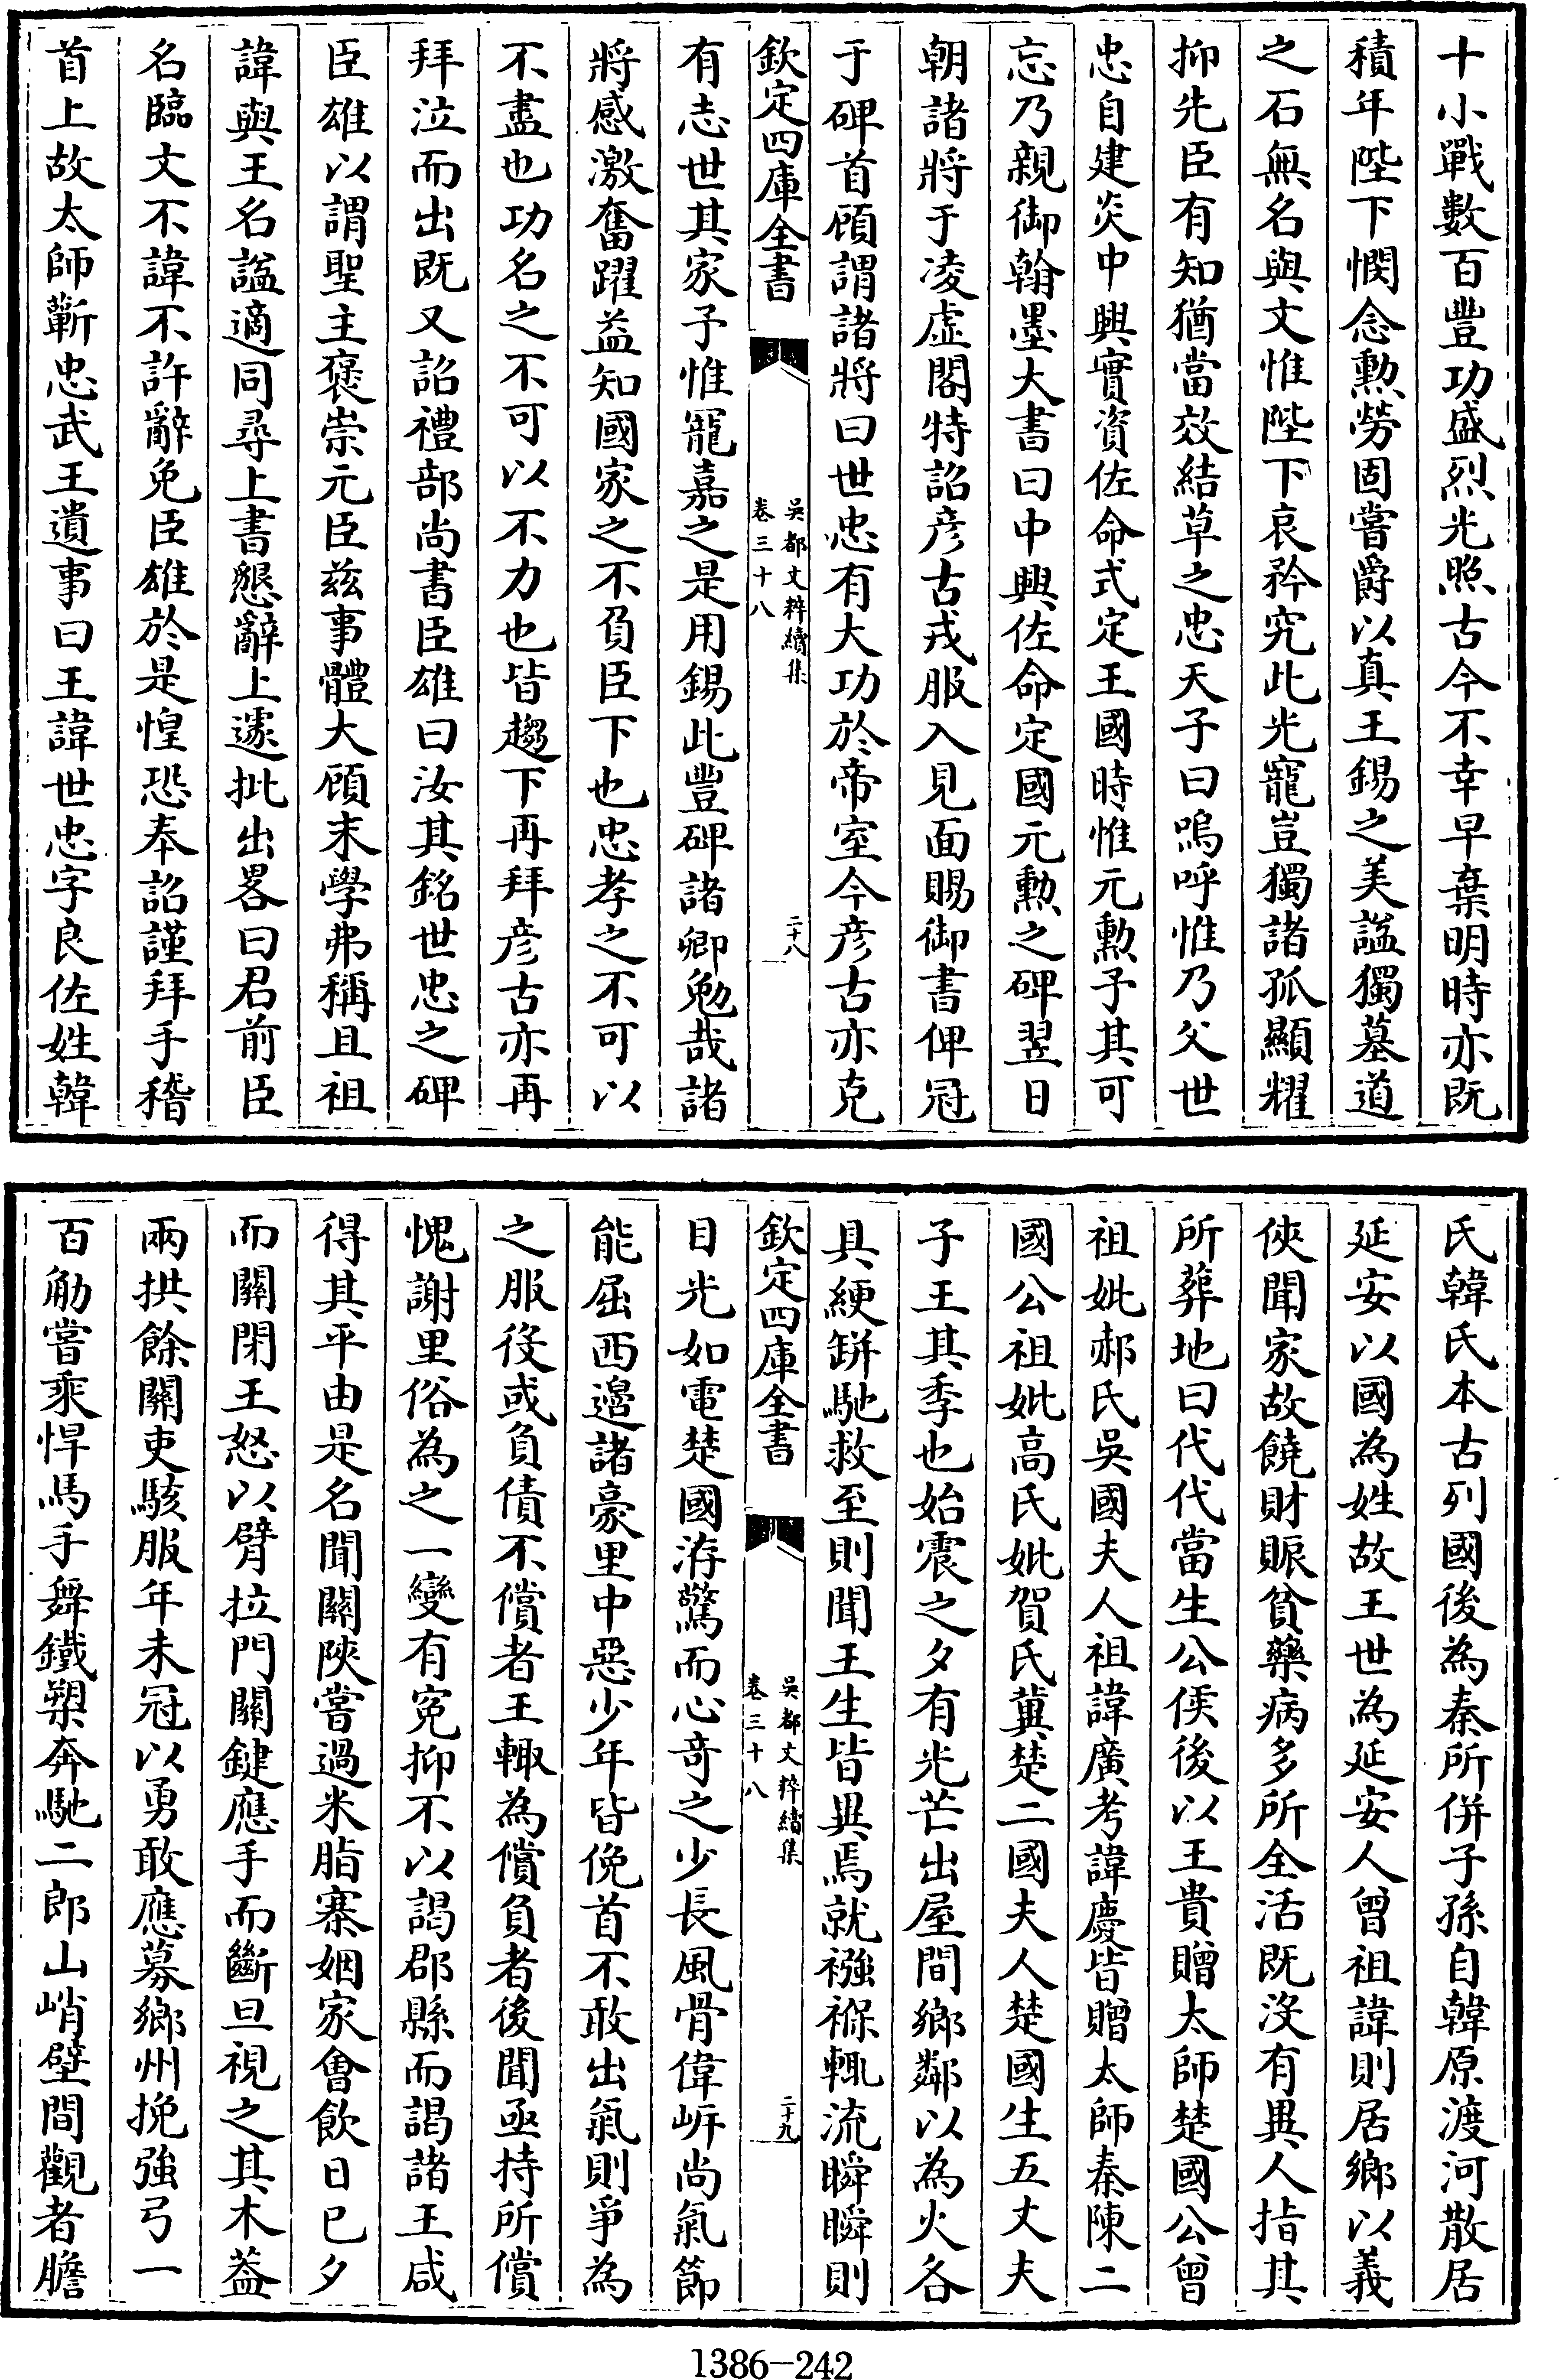 十小戰數百豐功盛烈光照古今不幸早棄明時亦既
積年陛下憫念勲勞固嘗爵以真王錫之美諡獨墓道
之石無名與文惟陛下哀矜究此光寵豈獨諸孤顯耀
抑先臣有知猶當效結草之忠天子曰嗚呼惟乃父世
忠自建炎中興實資佐命式定王國時惟元勲予其可
忘乃親御翰墨大書曰中興佐命定國元勲之碑翌日
朝諸將于凌虛閣特詔彦古戎服入見面賜御書俾冠
于碑首顧謂諸將曰世忠有大功於帝室今彦古亦克
欽定四庫全書
吳都文粹續集
卷三十八
二十八
有志世其家予惟寵嘉之是用錫此豐碑諸卿勉哉諸
將感激奮躍益知國家之不負臣下也忠孝之不可以
不盡也功名之不可以不力也皆趨下再拜彦古亦再
拜泣而出既又詔禮部尚書臣雄曰汝其銘世忠之碑
臣雄以謂聖主褒崇元臣兹事體大顧末學弗稱且祖
諱與王名諡適同尋上書懇辭上遽批出畧曰君前臣
名臨文不諱不許辭免臣雄於是惶恐奉詔謹拜手稽
首上故太師蘄忠武王遺事曰王諱世忠字良佐姓韓
氏韓氏本古列國後為秦所併子孫自韓原渡河散居
延安以國為姓故王世為延安人曾祖諱則居鄉以義
俠聞家故饒財賑貧藥病多所全活既沒有異人指其
所葬地曰代代當生公侯後以王貴贈太師楚國公曾
祖妣郝氏吳國夫人祖諱廣考諱慶皆贈太師秦陳二
國公祖妣高氏妣賀氏冀楚二國夫人楚國生五丈夫
子王其季也始震之夕有光芒出屋間鄉鄰以為火各
具綆缾馳救至則聞王生皆異焉就襁褓輒流瞬瞬則
欽定四庫全書
吳都文粹續集
卷三十八
二十九
目光如電楚國洊驚而心奇之少長風骨偉岸尚氣節
能屈西邉諸豪里中惡少年皆俛首不敢出氣則爭為
之服役或負債不償者王輙為償負者後聞亟持所償
愧謝里俗為之一變有寃抑不以謁郡縣而謁諸王咸
得其平由是名聞關陝嘗過米脂寨姻家會飲日已夕
而關閉王怒以臂拉門關鍵應手而斷旦視之其木葢
兩拱餘關吏駭服年未冠以勇敢應募鄉州挽強弓一
百觔嘗乘悍馬手舞鐵槊奔馳二郎山峭壁間觀者膽
1386-242